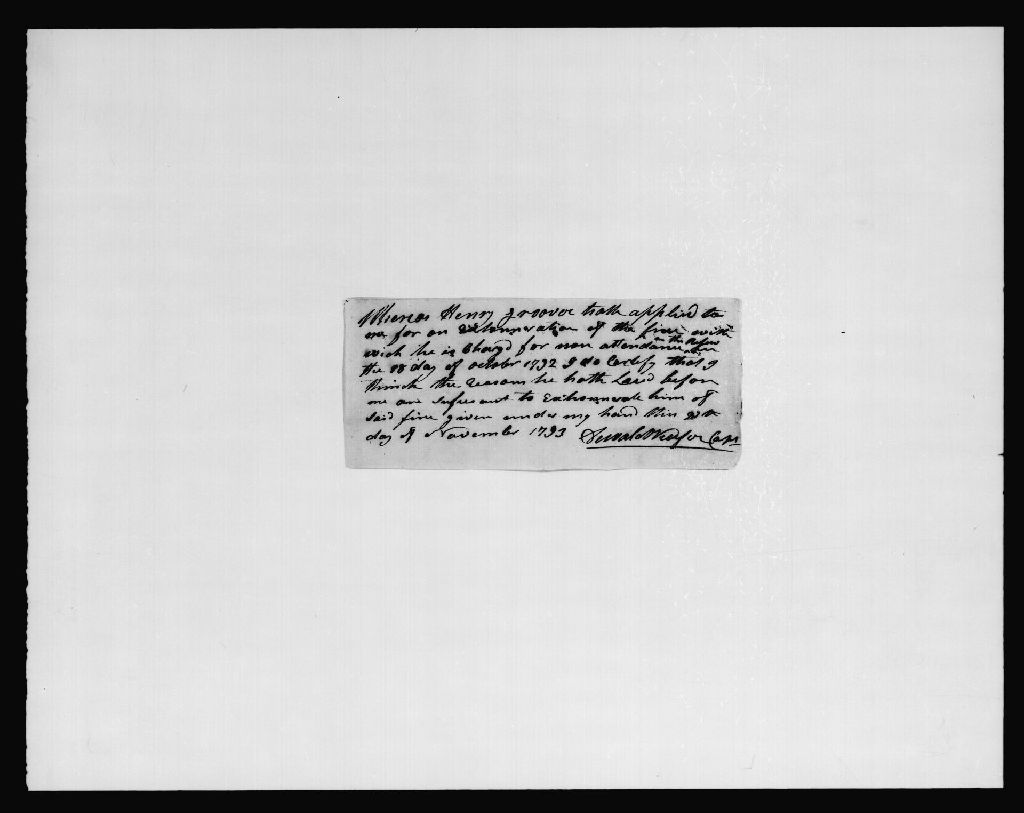 Whereas Henry groover hath applied to
me for an Exhonneration of the fine with
wich he is Charg'd for non attendance
the 18 day of octobr 1792 I do Certify that I
think the reasons he hath Laid before
me are sufisant to Exhonnerate him of
said fine given under my hand this
day of November 1793